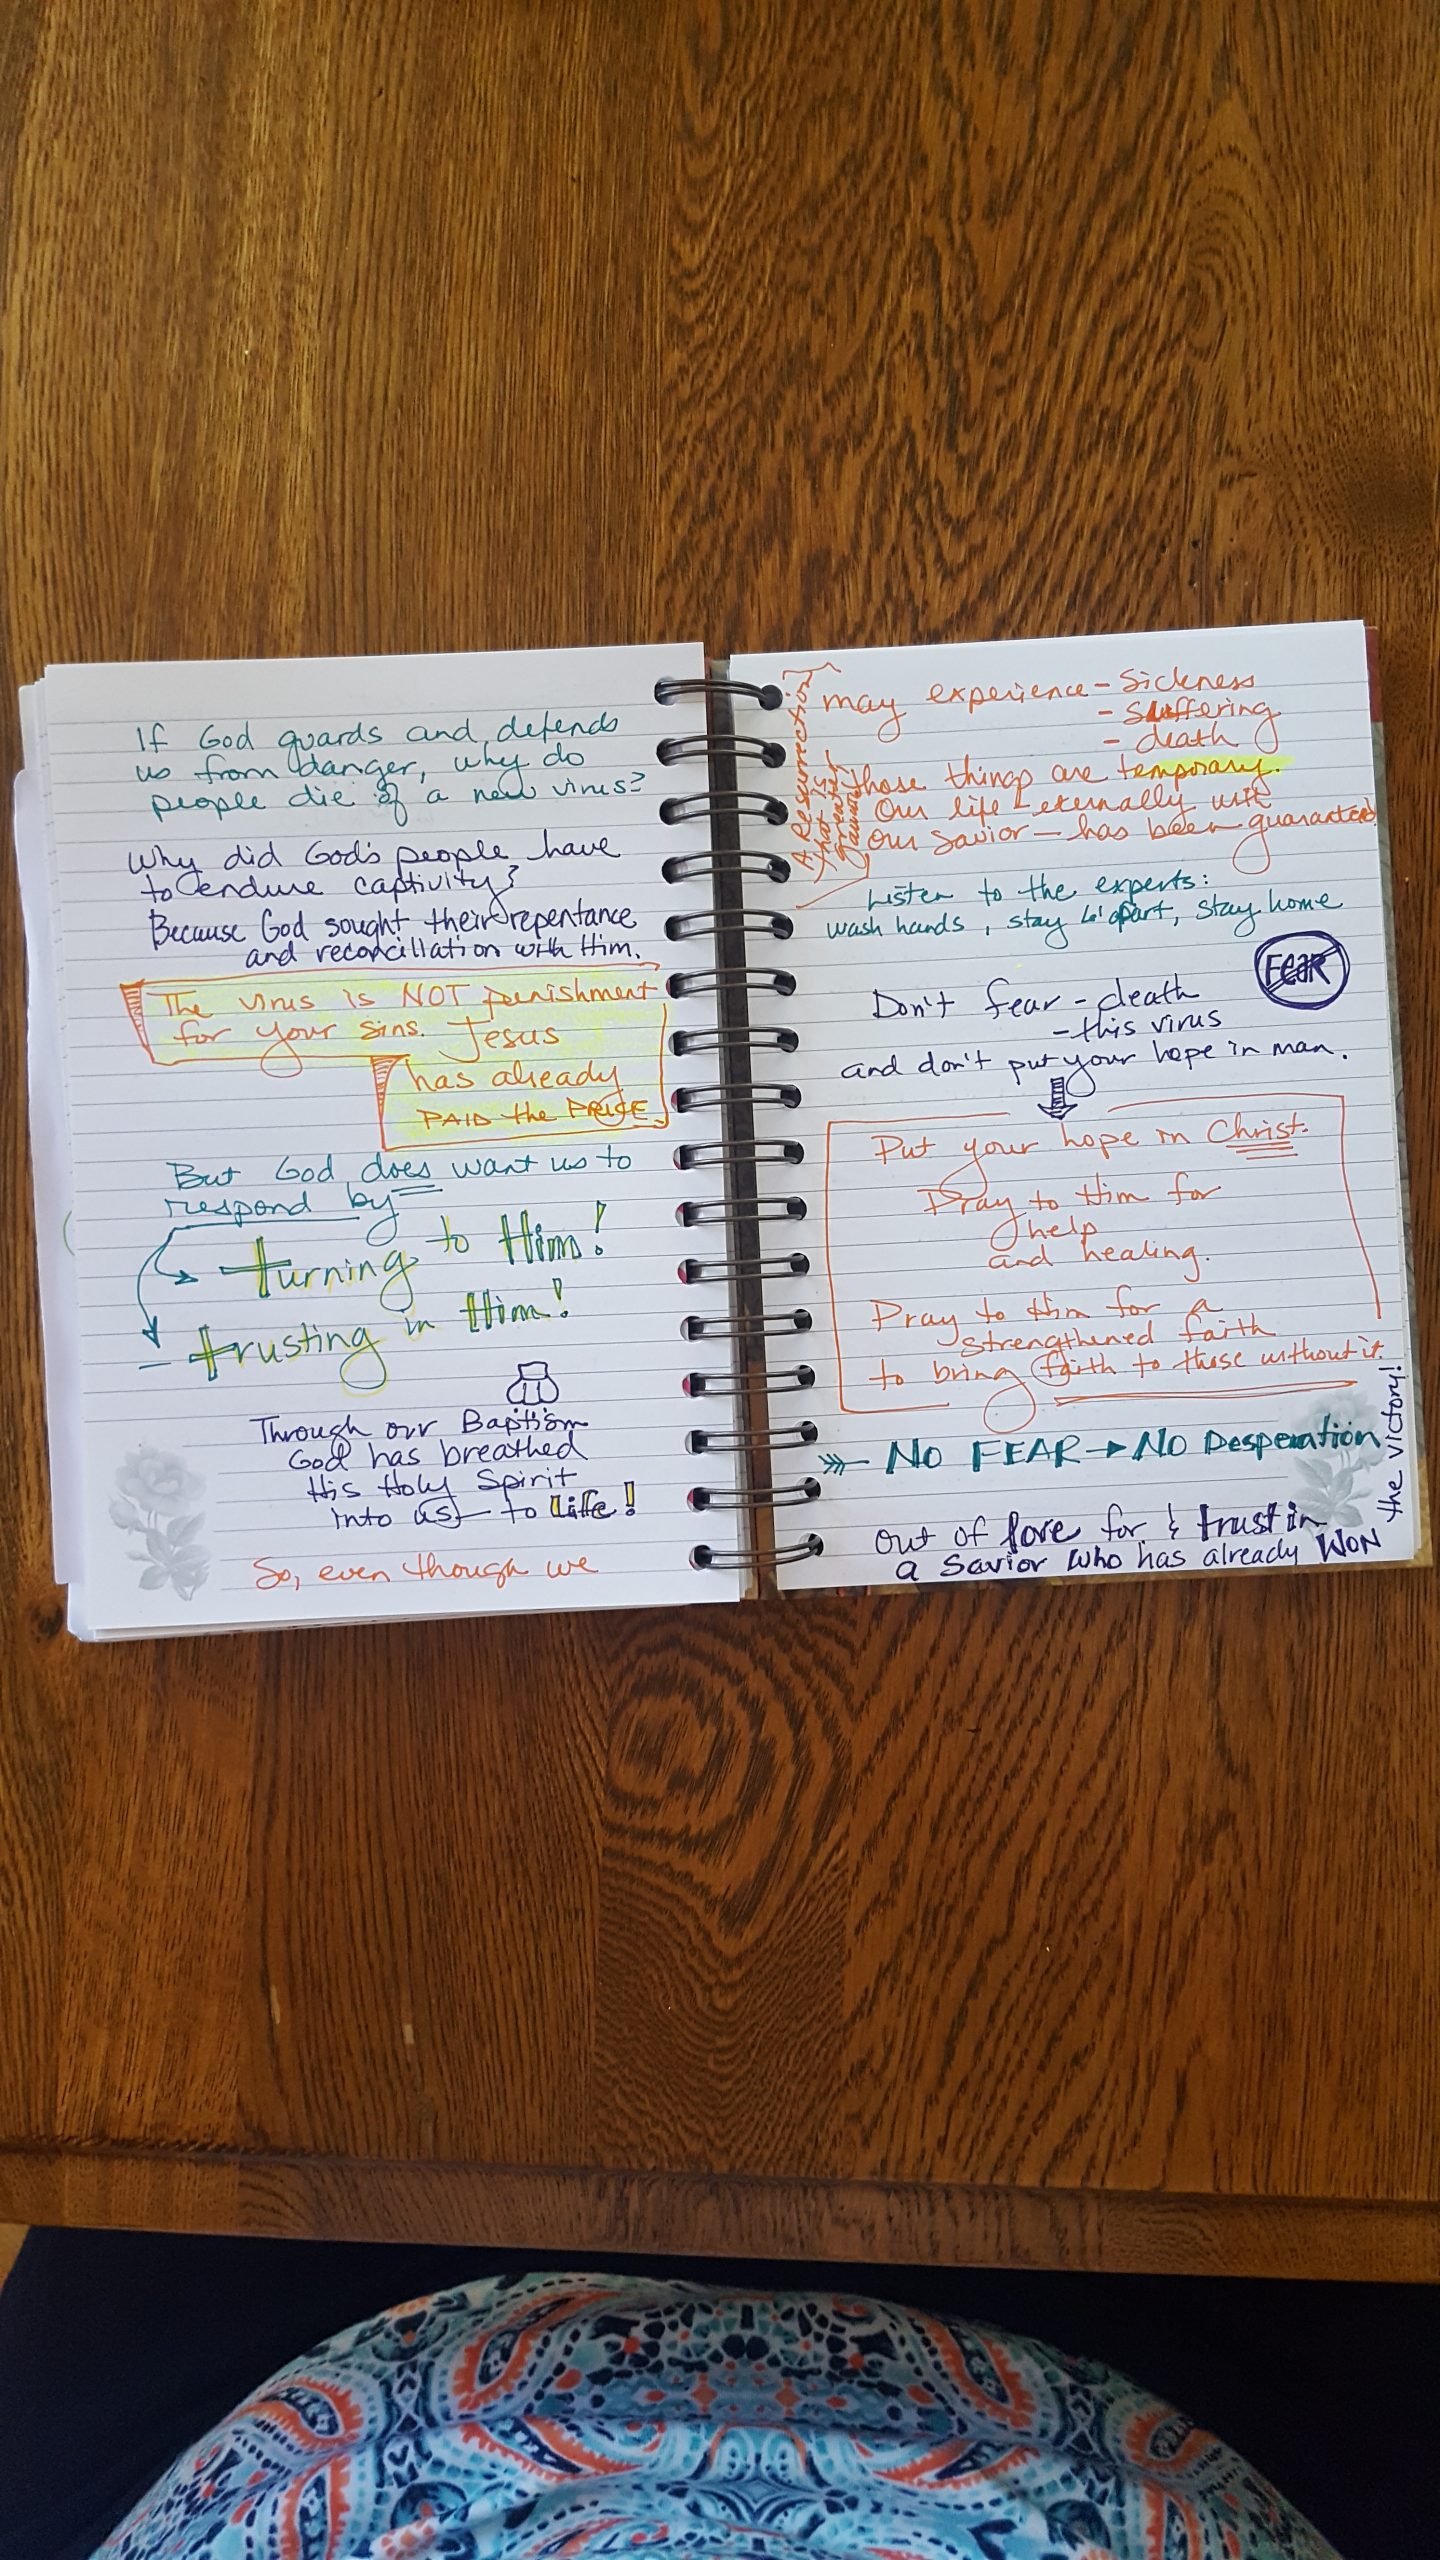 If God guards and defends
us from danger, why do
people die of a new virus?
Why did God's people have
to endure captivity?
Because God sought their repentance
and reconcillation with Him.
The virus is NOT punishment
for your sins. Jesus
has already
PAID the PRICE.
But God does want us to
respond by
- turning to Him!
- trusting in Him!
Through our Baptism
God has breathed
His Holy Spirit
into us - to Life!
So, even though we
may experience - Sickness
- Suffering
- death
those things are temporary.
Our life - eternally with
our Savior - has been guaranteed
A Resurrection
that is
greater
Listen to the experts:
wash hands, stay 6' apart, stay home
FEAR
Don't fear - death
- this virus
and don't put your hope in man.
Put your hope in Christ.
Pray to Him for
help
and healing.
Pray to Him for a
strengthened faith
to bring faith to those without it.
No FEAR → No Desperation
out of love for & trust in
a Savior who has already WON
the victory!